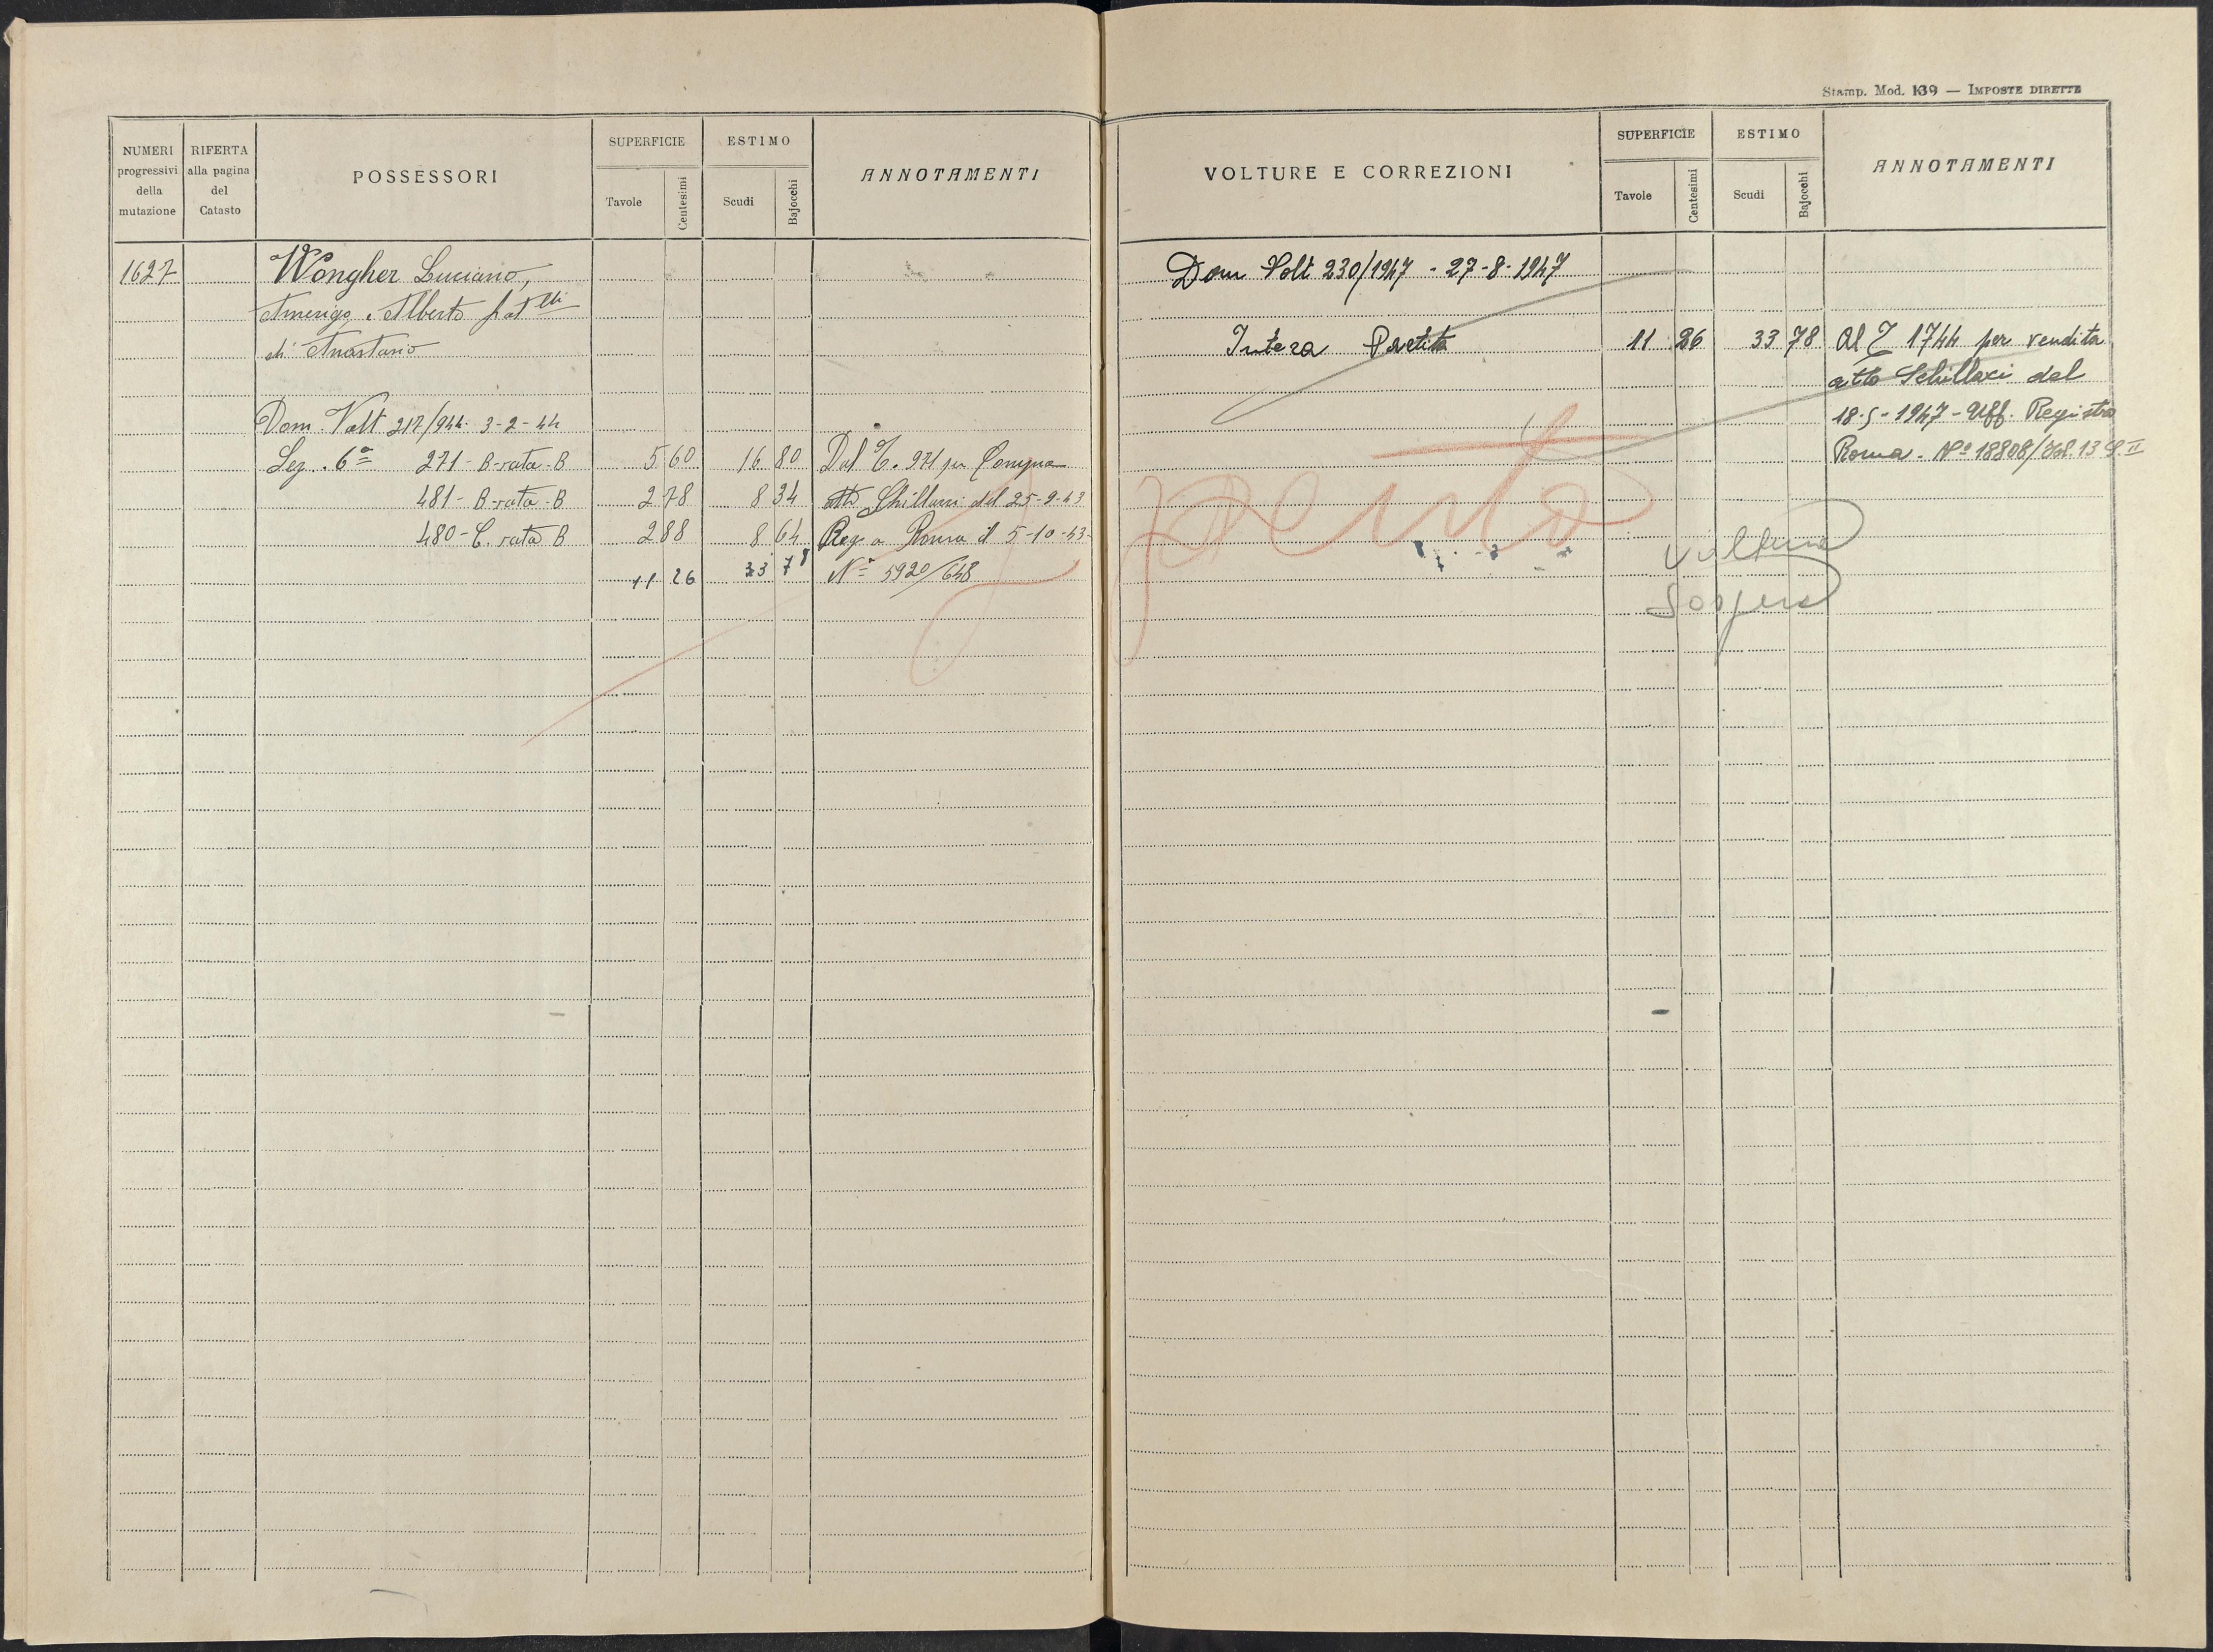 Stamp. Mod. 139 — IMPOSTE DIRETTE
NUMERI progressivi della mutazione
RIFERTA alla pagina del Catasto
POSSESSORI
SUPERFICIE
Tavole Centesimi
ESTIMO
Scudi Bajocchi
ANNOTAMENTI
1627 Wongher Luciano,
Amerigo e Alberto fratelli
di Anastasio
Dom. Volt 217/944 3-2-44
Sez. 6a 271 - B-rata-B 5 60 16 80 Dal T. 971 per Compra
481 - B-rata-B 2 78 8 34 atto Schillaci del 25-9-43
480 - C. rata B 2 88 8 64 Reg. a Roma il 5-10-43
11 26 33 78 No 5920/648
VOLTURE E CORREZIONI
SUPERFICIE
Tavole Centesimi
ESTIMO
Scudi Bajocchi
ANNOTAMENTI
Dom Volt 230/1947 - 27-8-1947
Intera Partita 11 26 33 78 Al T 1744 per vendita
atto Schillaci del
18-5-1947 - Uff. Registro
Roma. No 18808/Vol. 13
spento
voltura
sospesa